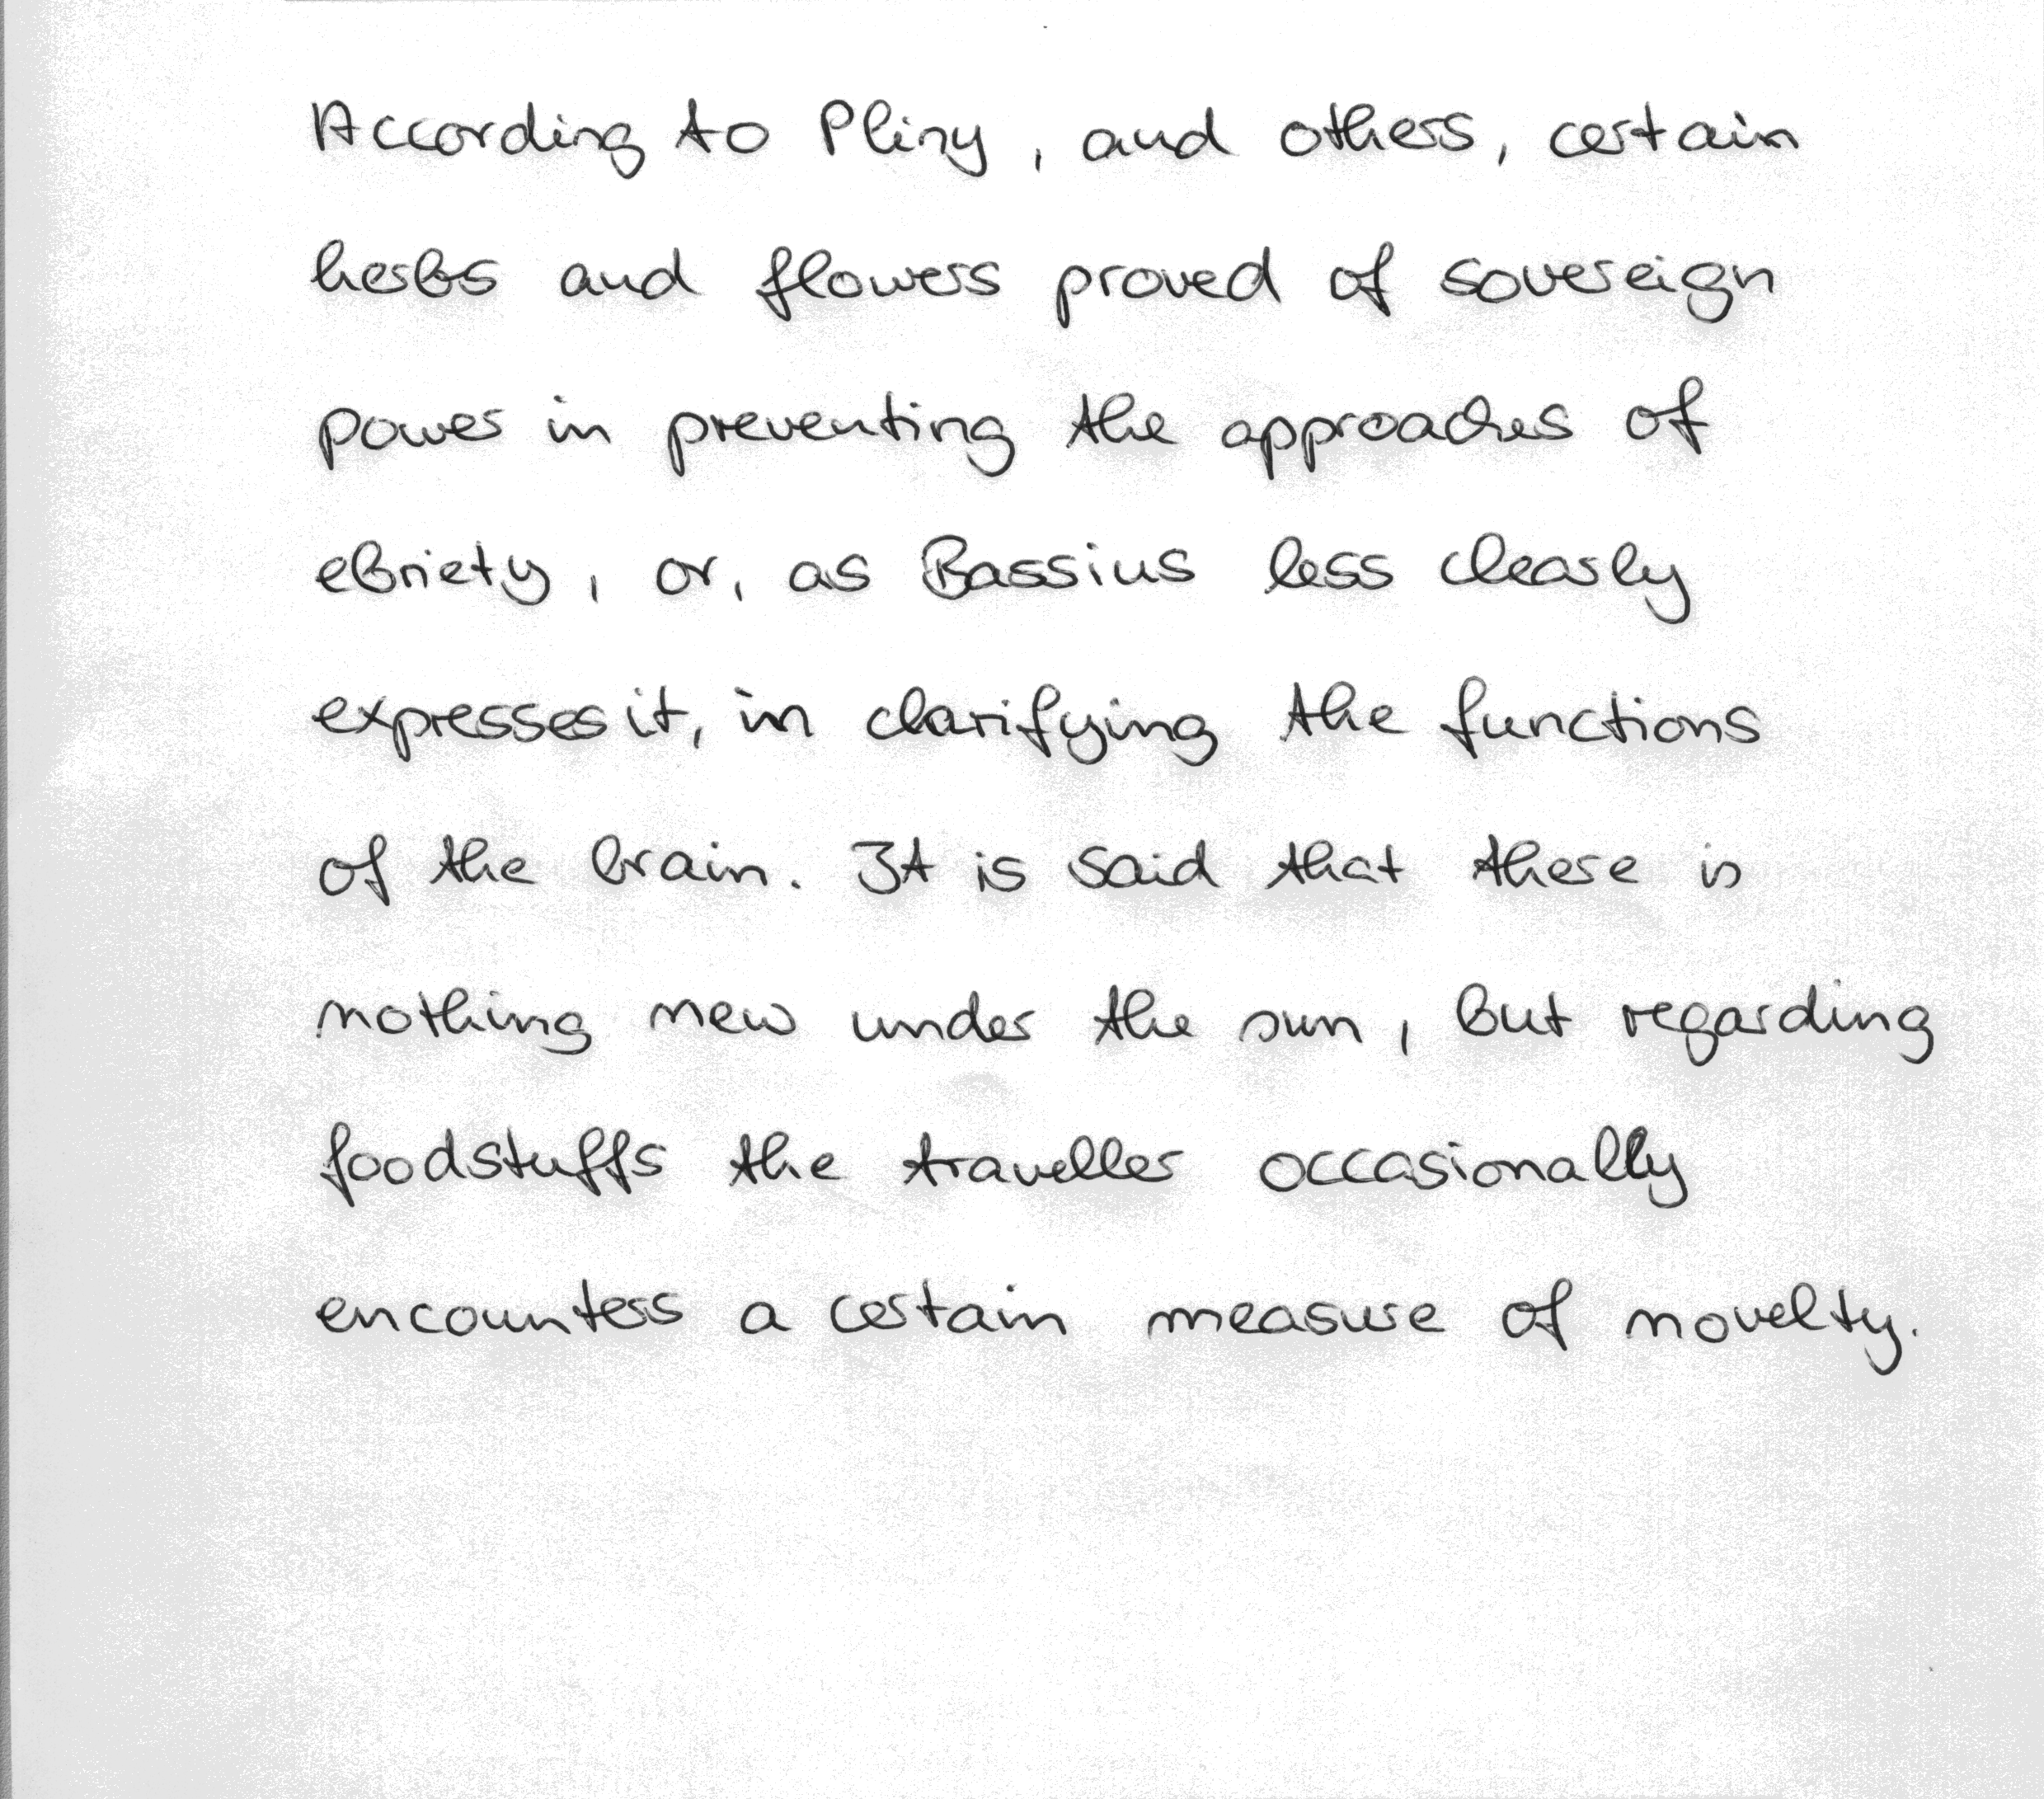 According to Pliny, and others, certain
herbs and flowers proved of sovereign
power in preventing the approaches of
ebriety, or, as Bassius less clearly
expresses it, in clarifying the functions
of the brain. It is said that there is
nothing new under the sun, but regarding
foodstuffs the traveller occasionally
encounters a certain measure of novelty.